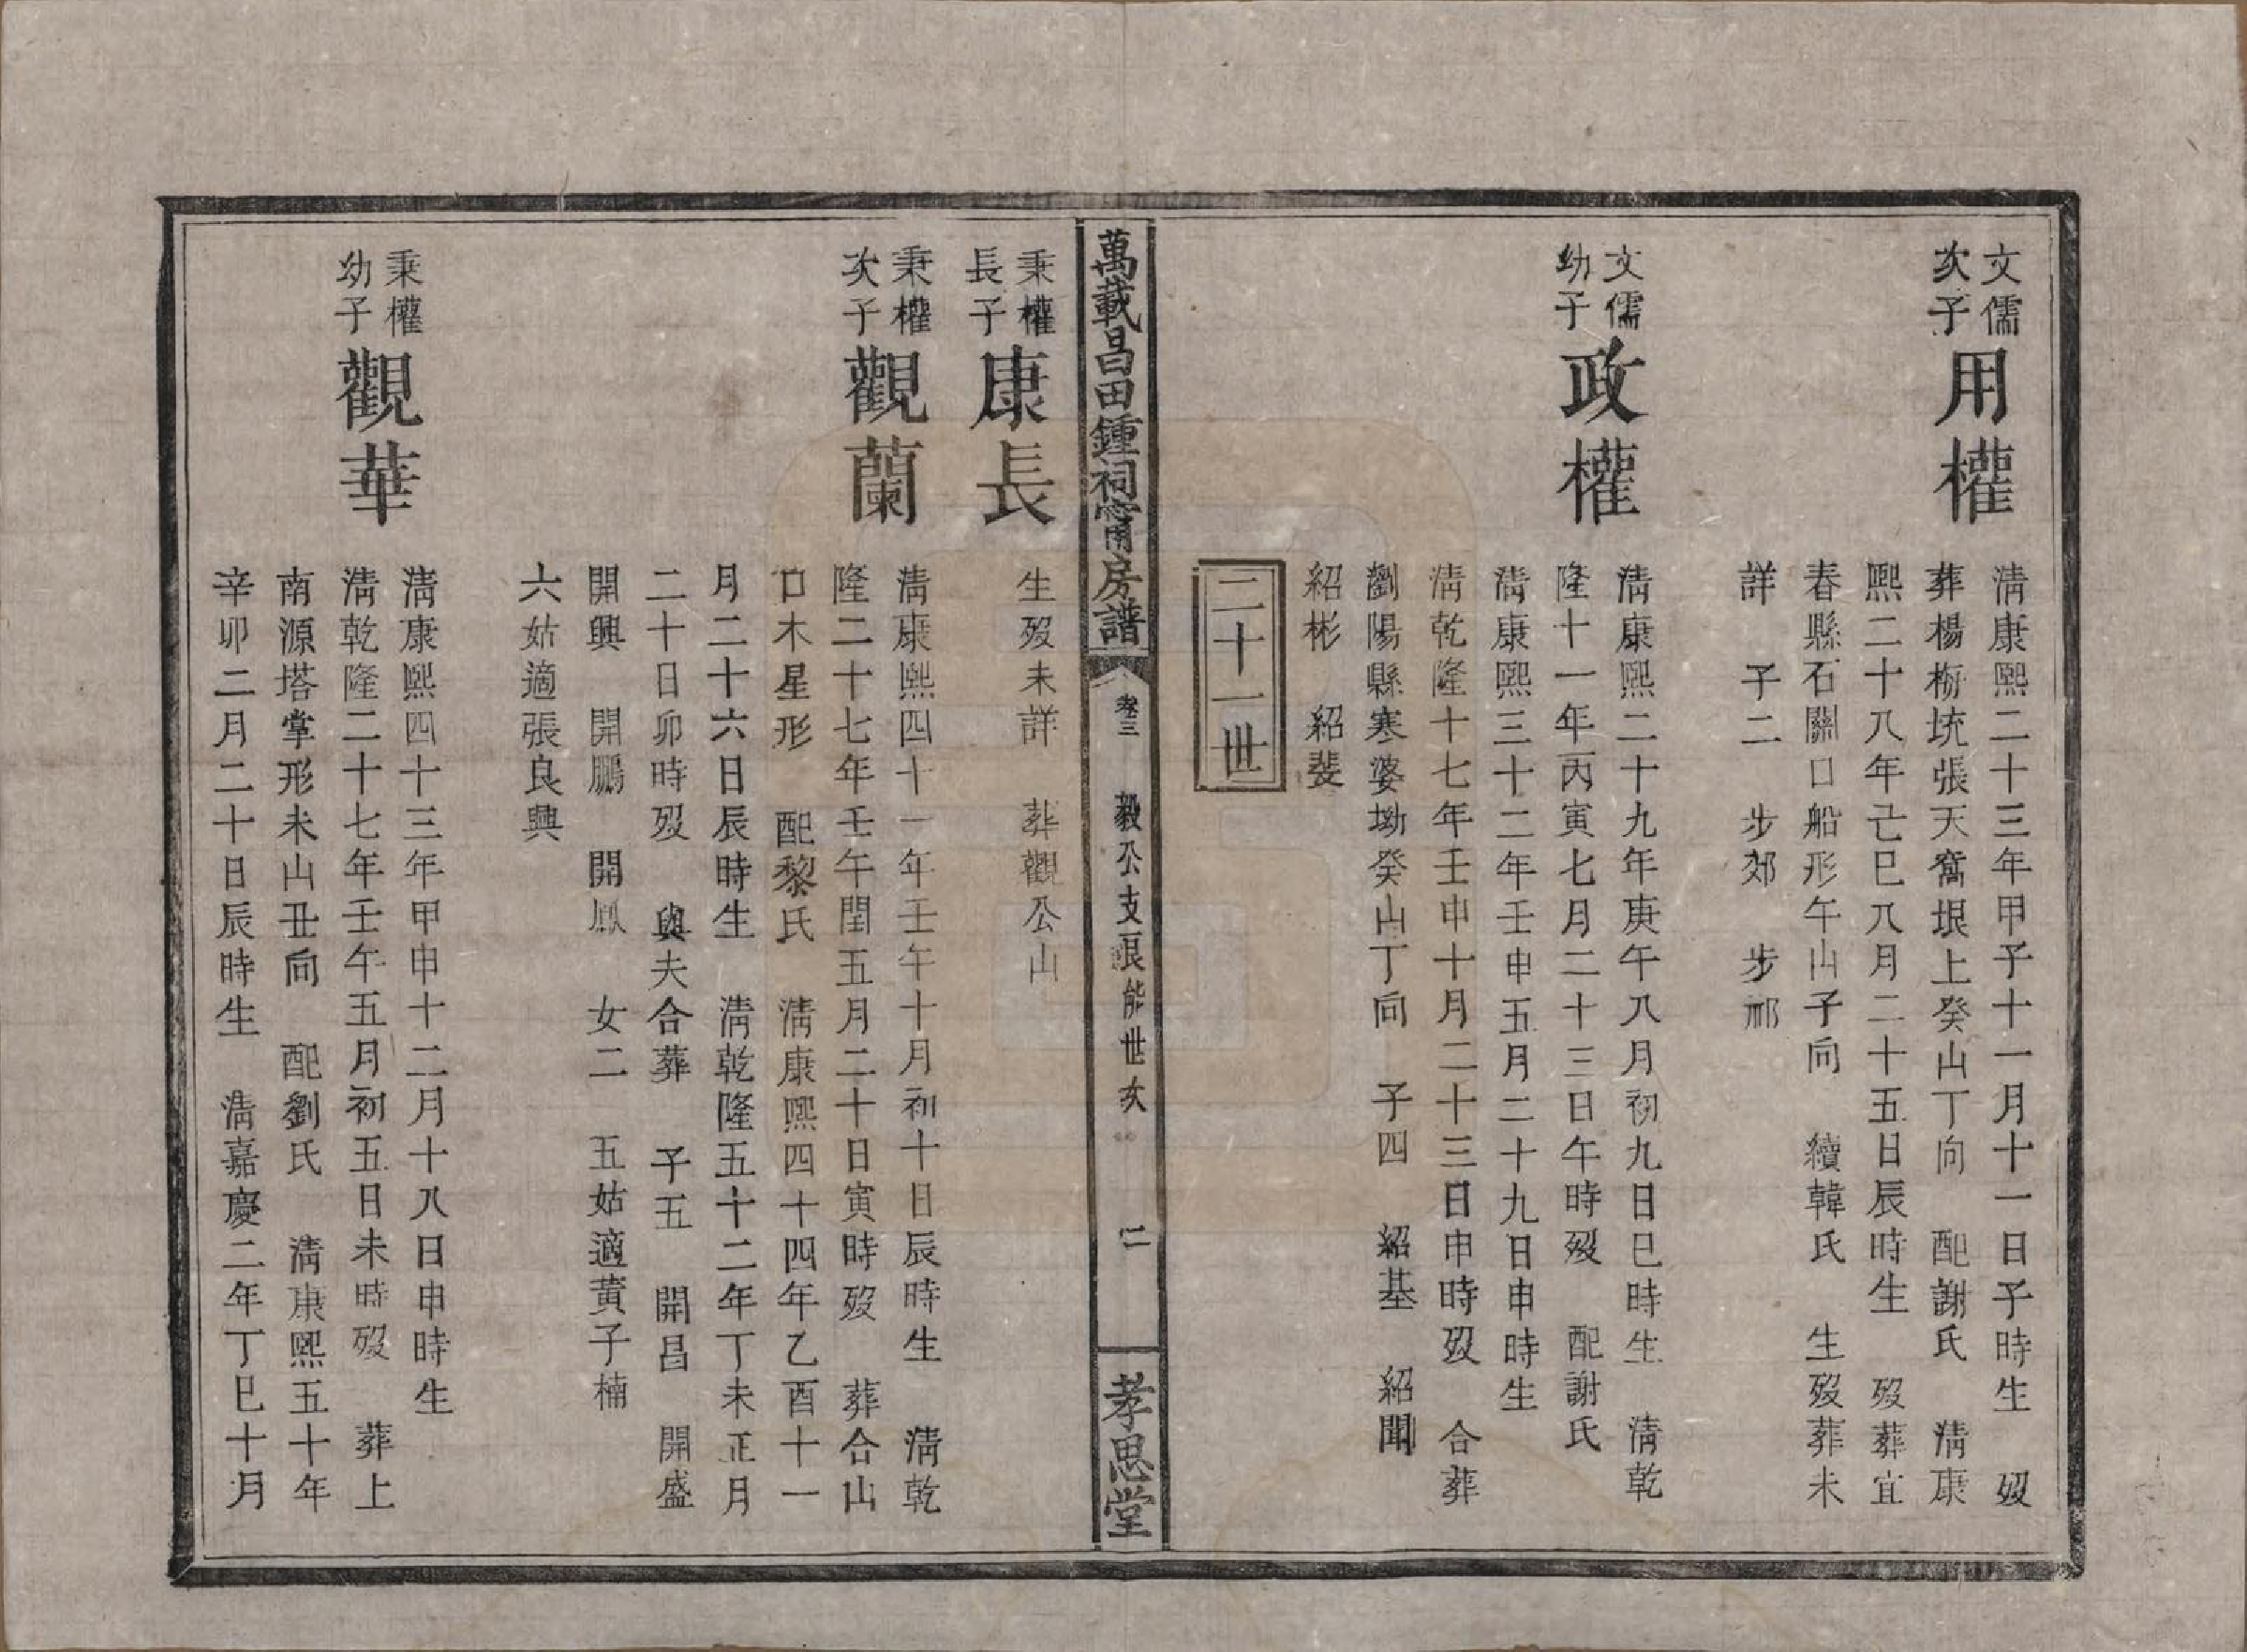 文儒
次子
用權
淸康熙二十三年甲子十一月十一日子時生 歿
葬楊梅坑張天窩垠上癸山丁向 配謝氏 淸康
熙二十八年己巳八月二十五日辰時生 歿葬宜
春縣石關口船形午山子向 續韓氏 生歿葬未
詳 子二 步郊 步祁
文儒
幼子
政權
淸康熙二十九年庚午八月初九日巳時生 淸乾
隆十一年丙寅七月二十三日午時歿 配謝氏
淸康熙三十二年壬申五月二十九日申時生
淸乾隆十七年壬申十月二十三日申時歿 合葬
瀏陽縣寒婆坳癸山丁向 子四 紹基 紹聞
紹彬 紹斐
二十一世
萬載昌田鍾祠甯房譜
卷三
毅公支艮能世次
二
孝思堂
秉權
長子
康長
生歿未詳 葬觀公山
秉權
次子
觀蘭
淸康熙四十一年壬午十月初十日辰時生 淸乾
隆二十七年壬午閏五月二十日寅時歿 葬合山
口木星形 配黎氏 淸康熙四十四年乙酉十一
月二十六日辰時生 淸乾隆五十二年丁未正月
二十日卯時歿 與夫合葬 子五 開昌 開盛
開興 開鵬 開鳳 女二 五姑適黃子楠
六姑適張良興
秉權
幼子
觀華
淸康熙四十三年甲申十二月十八日申時生
淸乾隆二十七年壬午五月初五日未時歿 葬上
南源塔掌形未山丑向 配劉氏 淸康熙五十年
辛卯二月二十日辰時生 淸嘉慶二年丁巳十月